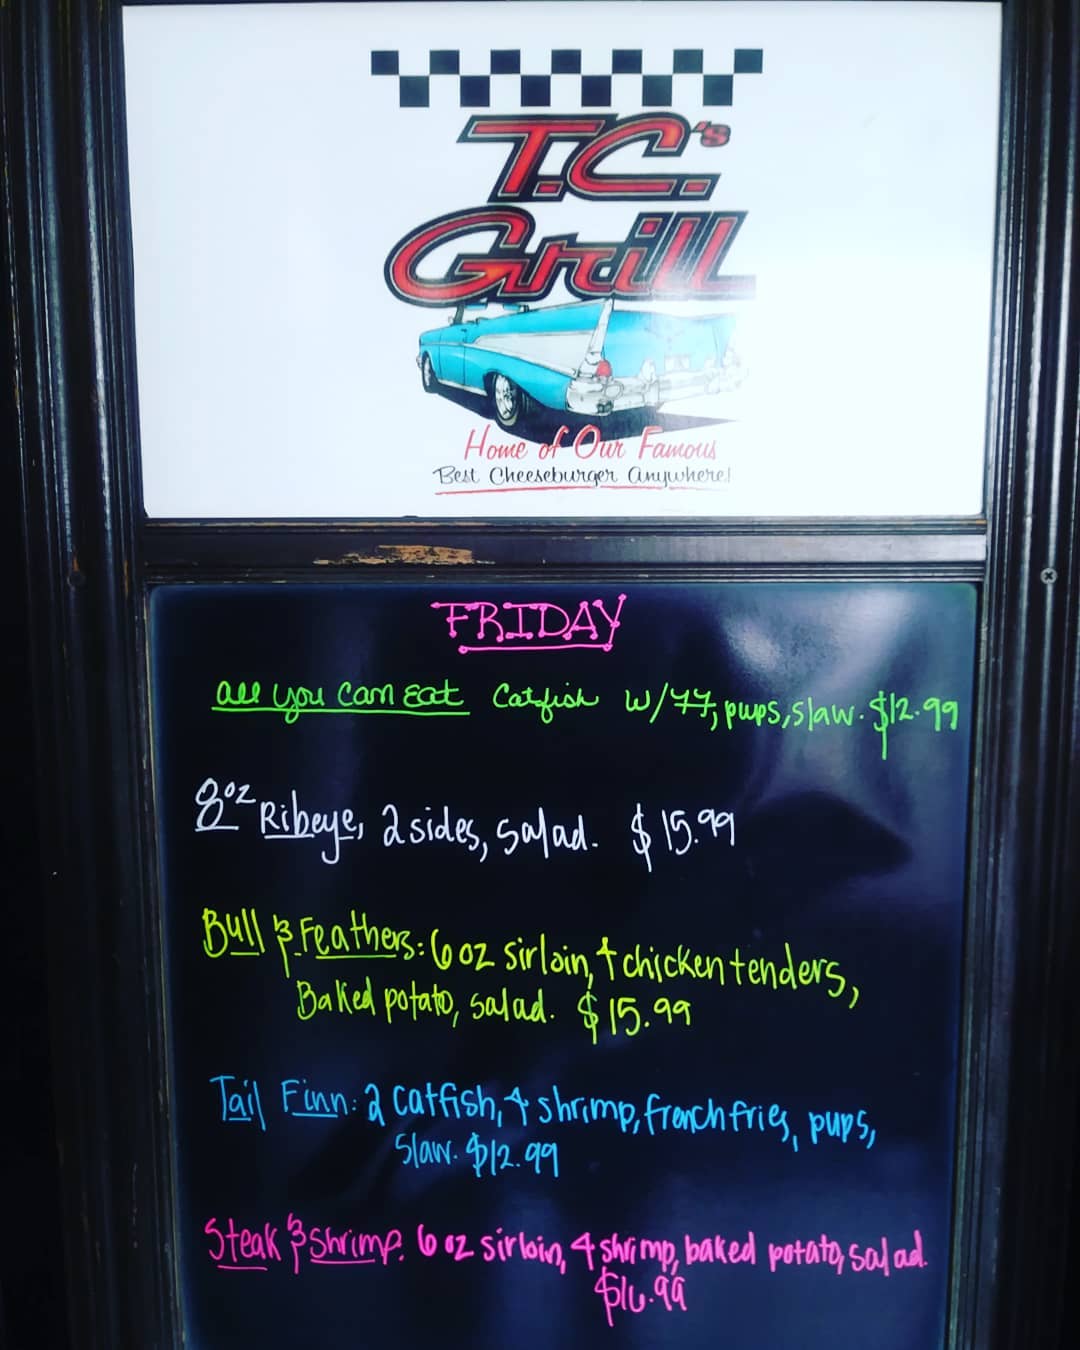 T.C.'s
Grill
Home of Our Famous
Best Cheeseburger Anywhere!
FRIDAY
all you can Eat Catfish w/ff, pups, slaw. $12.99
8oz Ribeye, 2 sides, salad. $15.99
Bull & Feathers: 6 oz sirloin, 4 chicken tenders,
Baked potato, salad. $15.99
Tail Finn: 2 catfish, 4 shrimp, french fries, pups,
slaw. $12.99
Steak & Shrimp: 6 oz sirloin, 4 shrimp, baked potato, salad.
$16.99